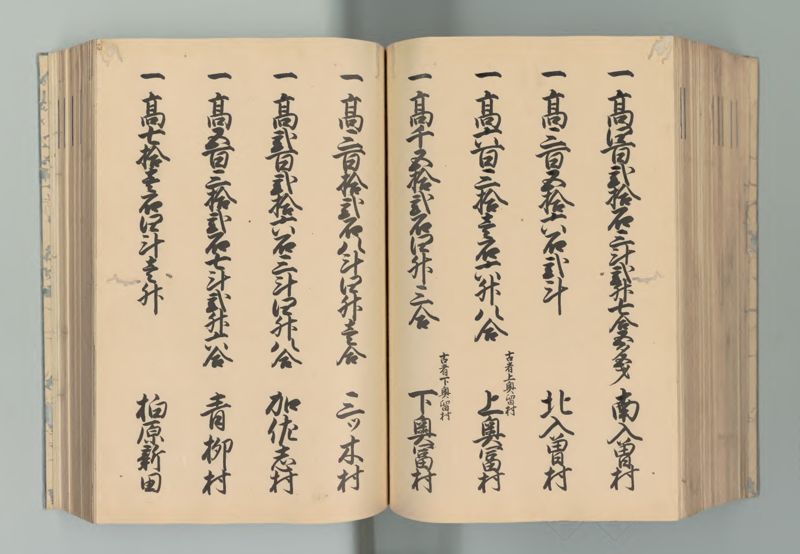 一 高四百弐拾石三斗弐升七合五夕 南入曽村
一 高三百五拾六石弐斗 北入曽村
古者上奥留村
一 高六百三拾壱石六升八合 上奥冨村
古者下奥留村
一 高千五拾弐石四升三合 下奥冨村
一 高三百拾弐石八斗四升壱合 三ッ木村
一 高弐百弐拾六石三斗四升八合 加佐志村
一 高五百三拾弐石七斗弐升六合 青柳村
一 高七拾壱石四斗壱升 柏原新田